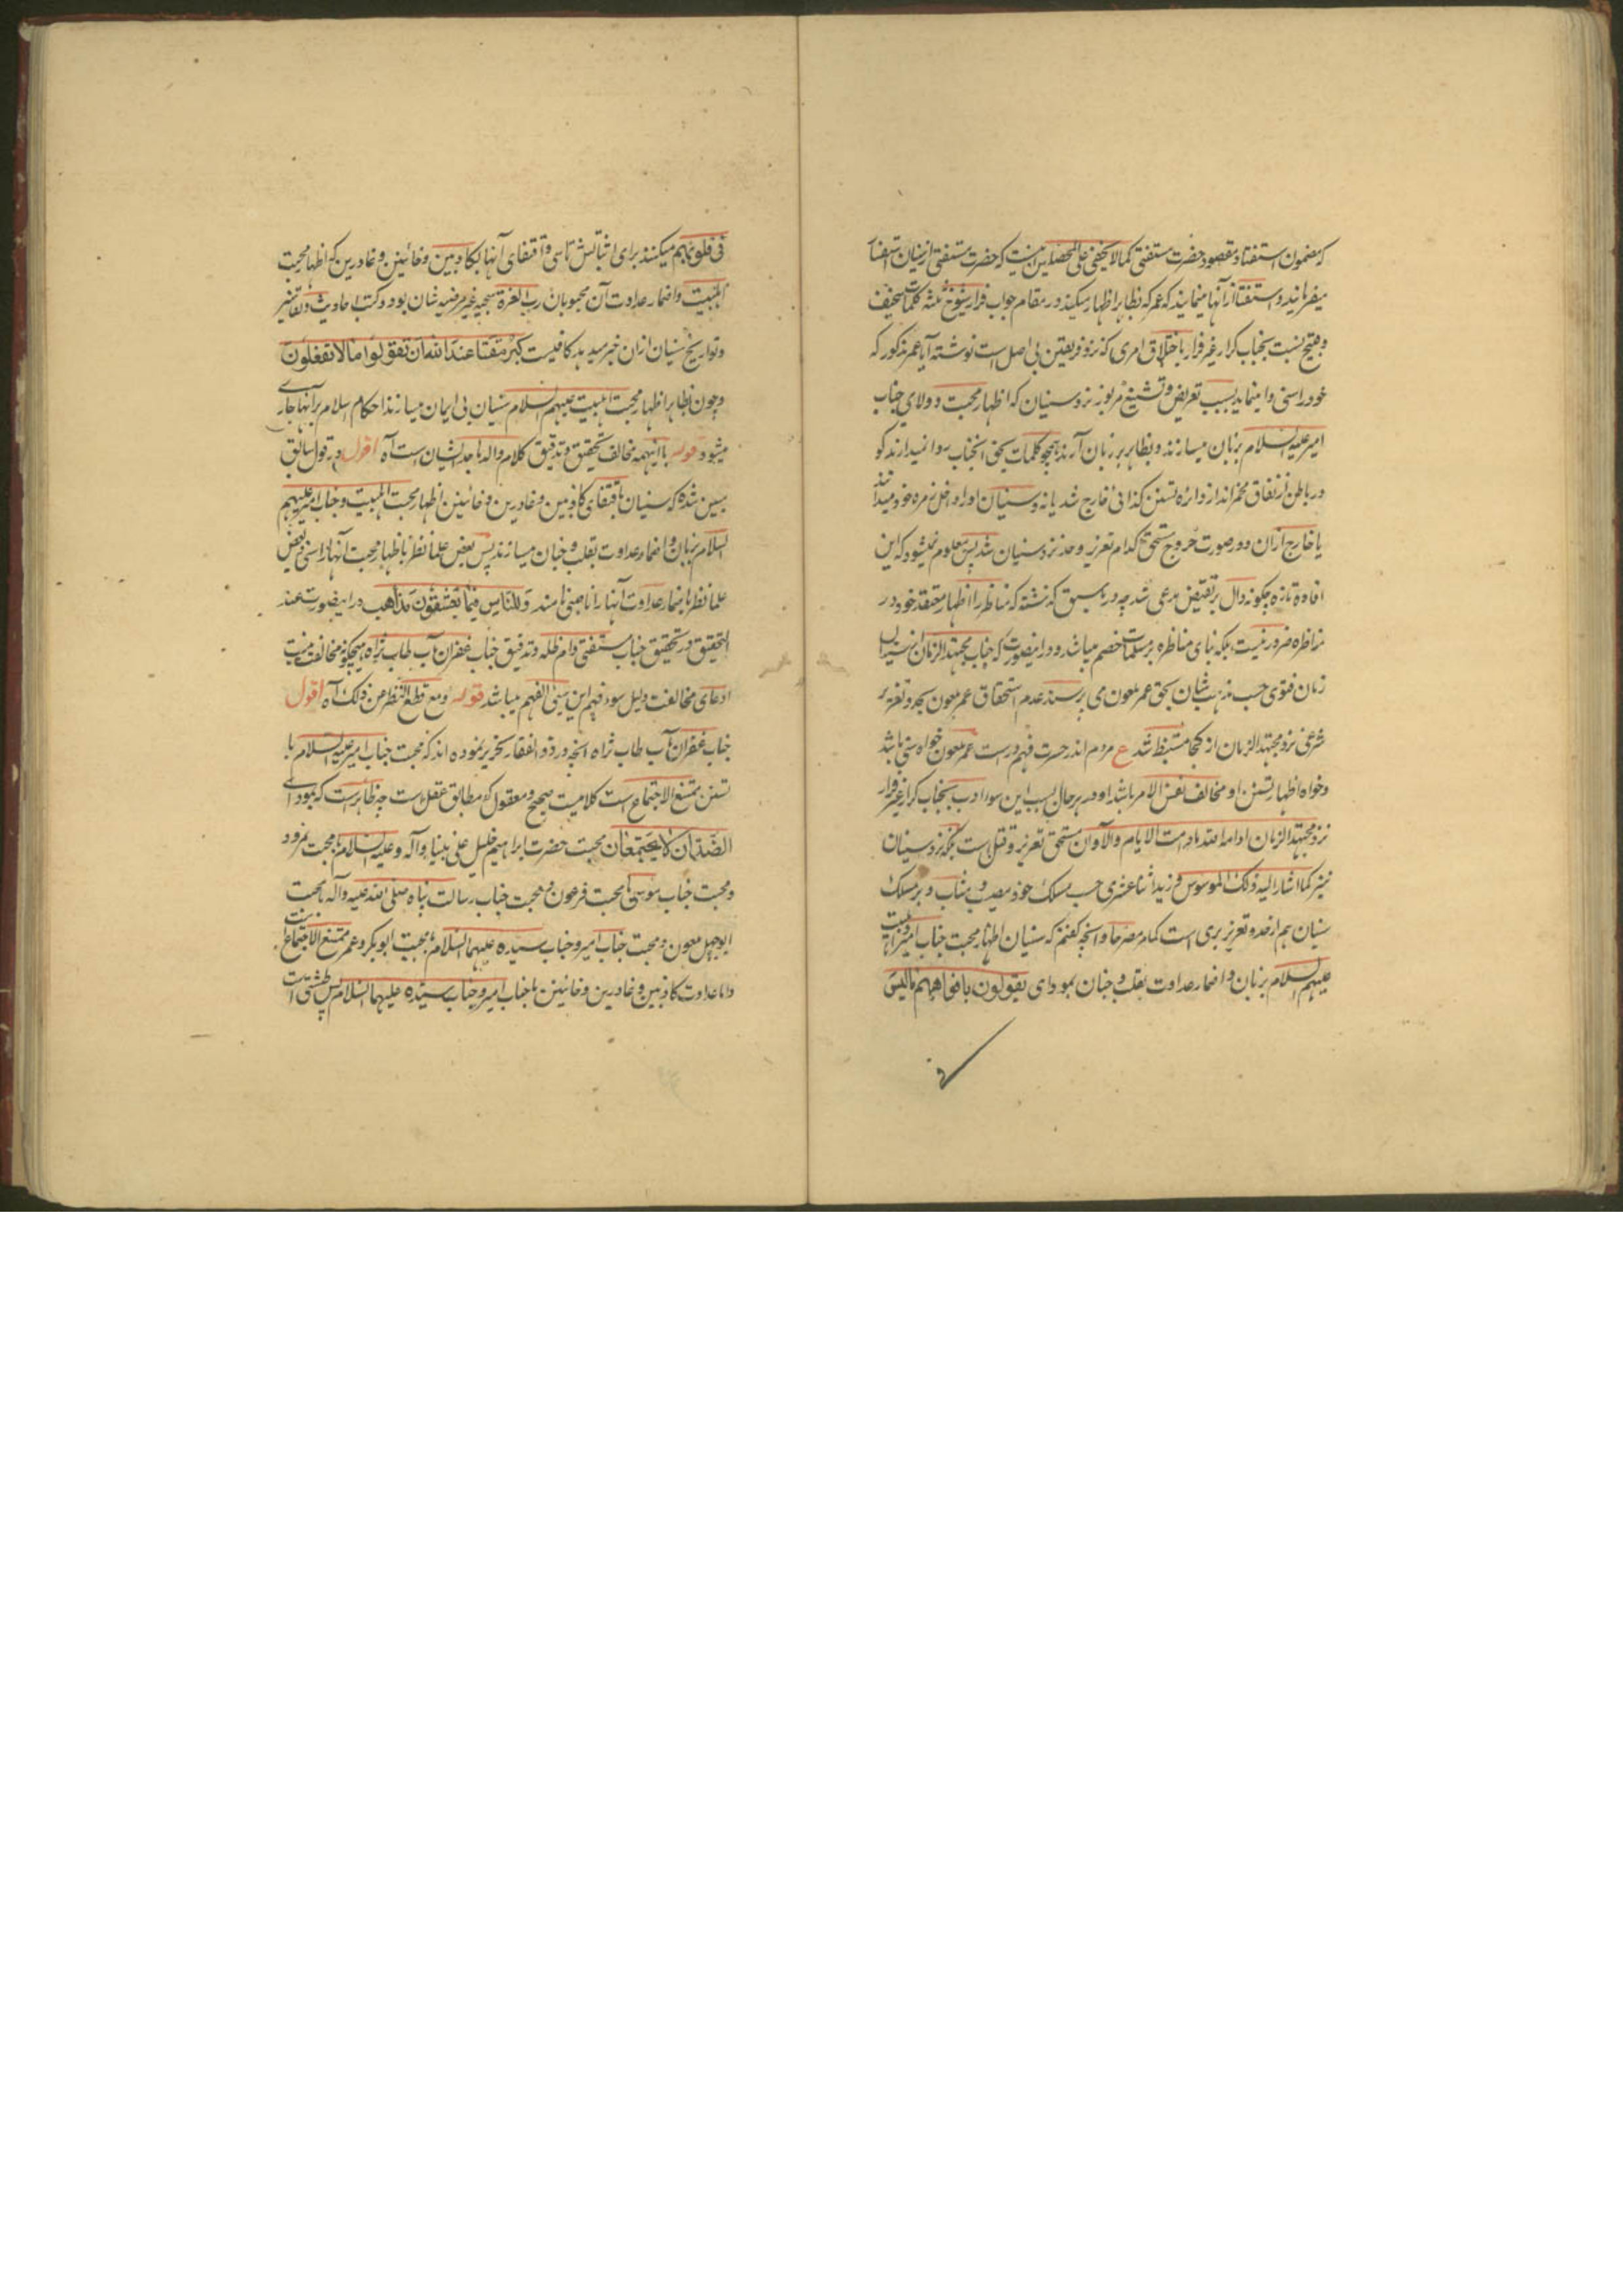 که مضمون استفتا و مقصود حضرت مستفتی کما لا یخفی علی المحصلین نیست که حضرت مستفتی از سنیان استفتا
میفرمایند و استفتا از آنها مینمایند که عمر که بظاهر اظهار میکند در مقام جواب فرار شیوخ ثلثه کلمات سخیف
و قبیح نسبت بجناب کرار غیر فرار باختلاق امری که نزد فریقین بی اصل است نوشته آیا عمر مذکور که
خود را سنی وا مینماید بسبب تعریض و تشنیع مزبور نزد سنیان که اظهار محبت و ولای جناب
امیر علیه السلام بزبان میسازند و بظاهر بر زبان آرند همچو کلمات بحق آنجناب روا نمیدارند گو
در باطن از نفاق مخمراند از دائره تسنن کذائی خارج شد یا نه و سنیان او را داخل زمره خود میدانند
یا خارج از آن و در صورت خروج مستحق کدام تعزیر و حد نزد سنیان شد پس معلوم نمیشود که این
افاده تازه چگونه دال بر نقیض مدعی شد چه در ما سبق گذشته که مناظر را اظهار معتقد خود در
مناظره ضرور نیست بلکه بنای مناظره بر مسلمات خصم میباشد و در اینصورت که جناب مجتهد الزمان از سنیان
زمان فتوی حسب مذهب شان بحق عمر ملعون می پرسند عدم استحقاق عمر ملعون بحد و تعزیر
شرعی نزد مجتهد الزمان از کجا مستنبط شد ع مردم اندر حسرت فهم درست عمر ملعون خواه سنی باشد
و خواه اظهار تسنن او مخالف نفس الامر باشد او در هر حال بسبب این سوء ادب بجناب کرار غیر فرار
نزد مجتهد الزمان ادامه الله ما دامت الایام والآوان مستحق تعزیر و قتل است بلکه نزد سنیان
نیز کما اشار الیه ذلک الموسوس و زید اثنا عشری حسب مسلک خود مصیب و مثاب و بر مسلک
سنیان هم از حد و تعزیر بری است کما مر مصرحا و آنچه گفتم که سنیان اظهار محبت جناب امیر و اهلبیت
علیهم السلام بزبان و اضمار عداوت بقلب و جنان بمودای یقولون بافواههم ما لیس
فی قلوبهم میکنند برای اثباتش تاسی و اقتفای آنها بکاذبین و خائنین و غادرین که اظهار محبت
اهلبیت و اضمار عداوت آن محبوبان رب العزة سجیه غیر مرضیه شان بود و کتب احادیث و تفاسیر
و تواریخ سنیان از آن خبر میدهد کافیست کبر مقتا عند الله ان تقولوا ما لا تفعلون
و چون بظاهر اظهار محبت اهلبیت علیهم السلام سنیان بی ایمان میسازند احکام اسلام بر آنها جاری
میشود قوله با اینهمه مخالف تحقیق و تدقیق کلام والد ماجد ایشان است آه اقول در قول سابق
مبین شده که سنیان باقتفای کاذبین و غادرین و خائنین اظهار محبت اهلبیت و جناب امیر علیهم
السلام بزبان و اضمار عداوت بقلب و جنان میسازند پس بعض علما نظر باظهار محبت آنها را سنی و بعض
علما نظر باضمار عداوت آنها را ناصبی نامند وللناس فیما یعشقون مذاهب در اینصورت عند
التحقیق در تحقیق جناب مستفتی دام ظله و تدقیق جناب غفران مآب طاب ثراه هیچگونه مخالفت نیست
ادعای مخالفت دلیل سوء فهم این سیئ الفهم میباشد قوله و مع قطع النظر من ذلک آه اقول
جناب غفران مآب طاب ثراه آنچه در ذو الفقار تحریر نموده اند که محبت جناب امیر علیه السلام با
تسنن ممتنع الاجتماع است کلامیست صحیح و معقول که مطابق عقل است چه ظاهر است که بمودای
الضدان لا یجتمعان محبت حضرت ابراهیم خلیل علی نبینا و آله و علیه السلام با محبت نمرود
و محبت جناب موسی با محبت فرعون و محبت جناب رسالت پناه صلی الله علیه و آله با محبت
ابوجهل ملعون و محبت جناب امیر و جناب سیده علیهما السلام با محبت ابوبکر و عمر ممتنع الاجتماع است
و اما عداوت کاذبین و غادرین و خائنین با جناب امیر و جناب سیده علیهما السلام پس